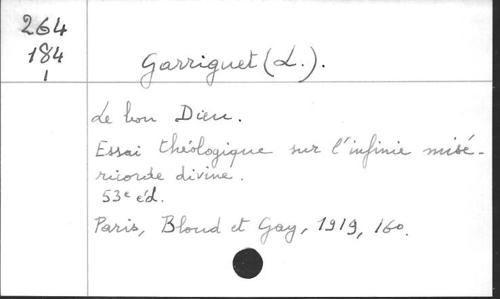 264
184
1
Garriguet (L.).
Le bon Dieu.
Essai théologique sur l'infinie misé-
ricorde divine.
53e éd.
Paris, Bloud et Gay, 1919, 160.